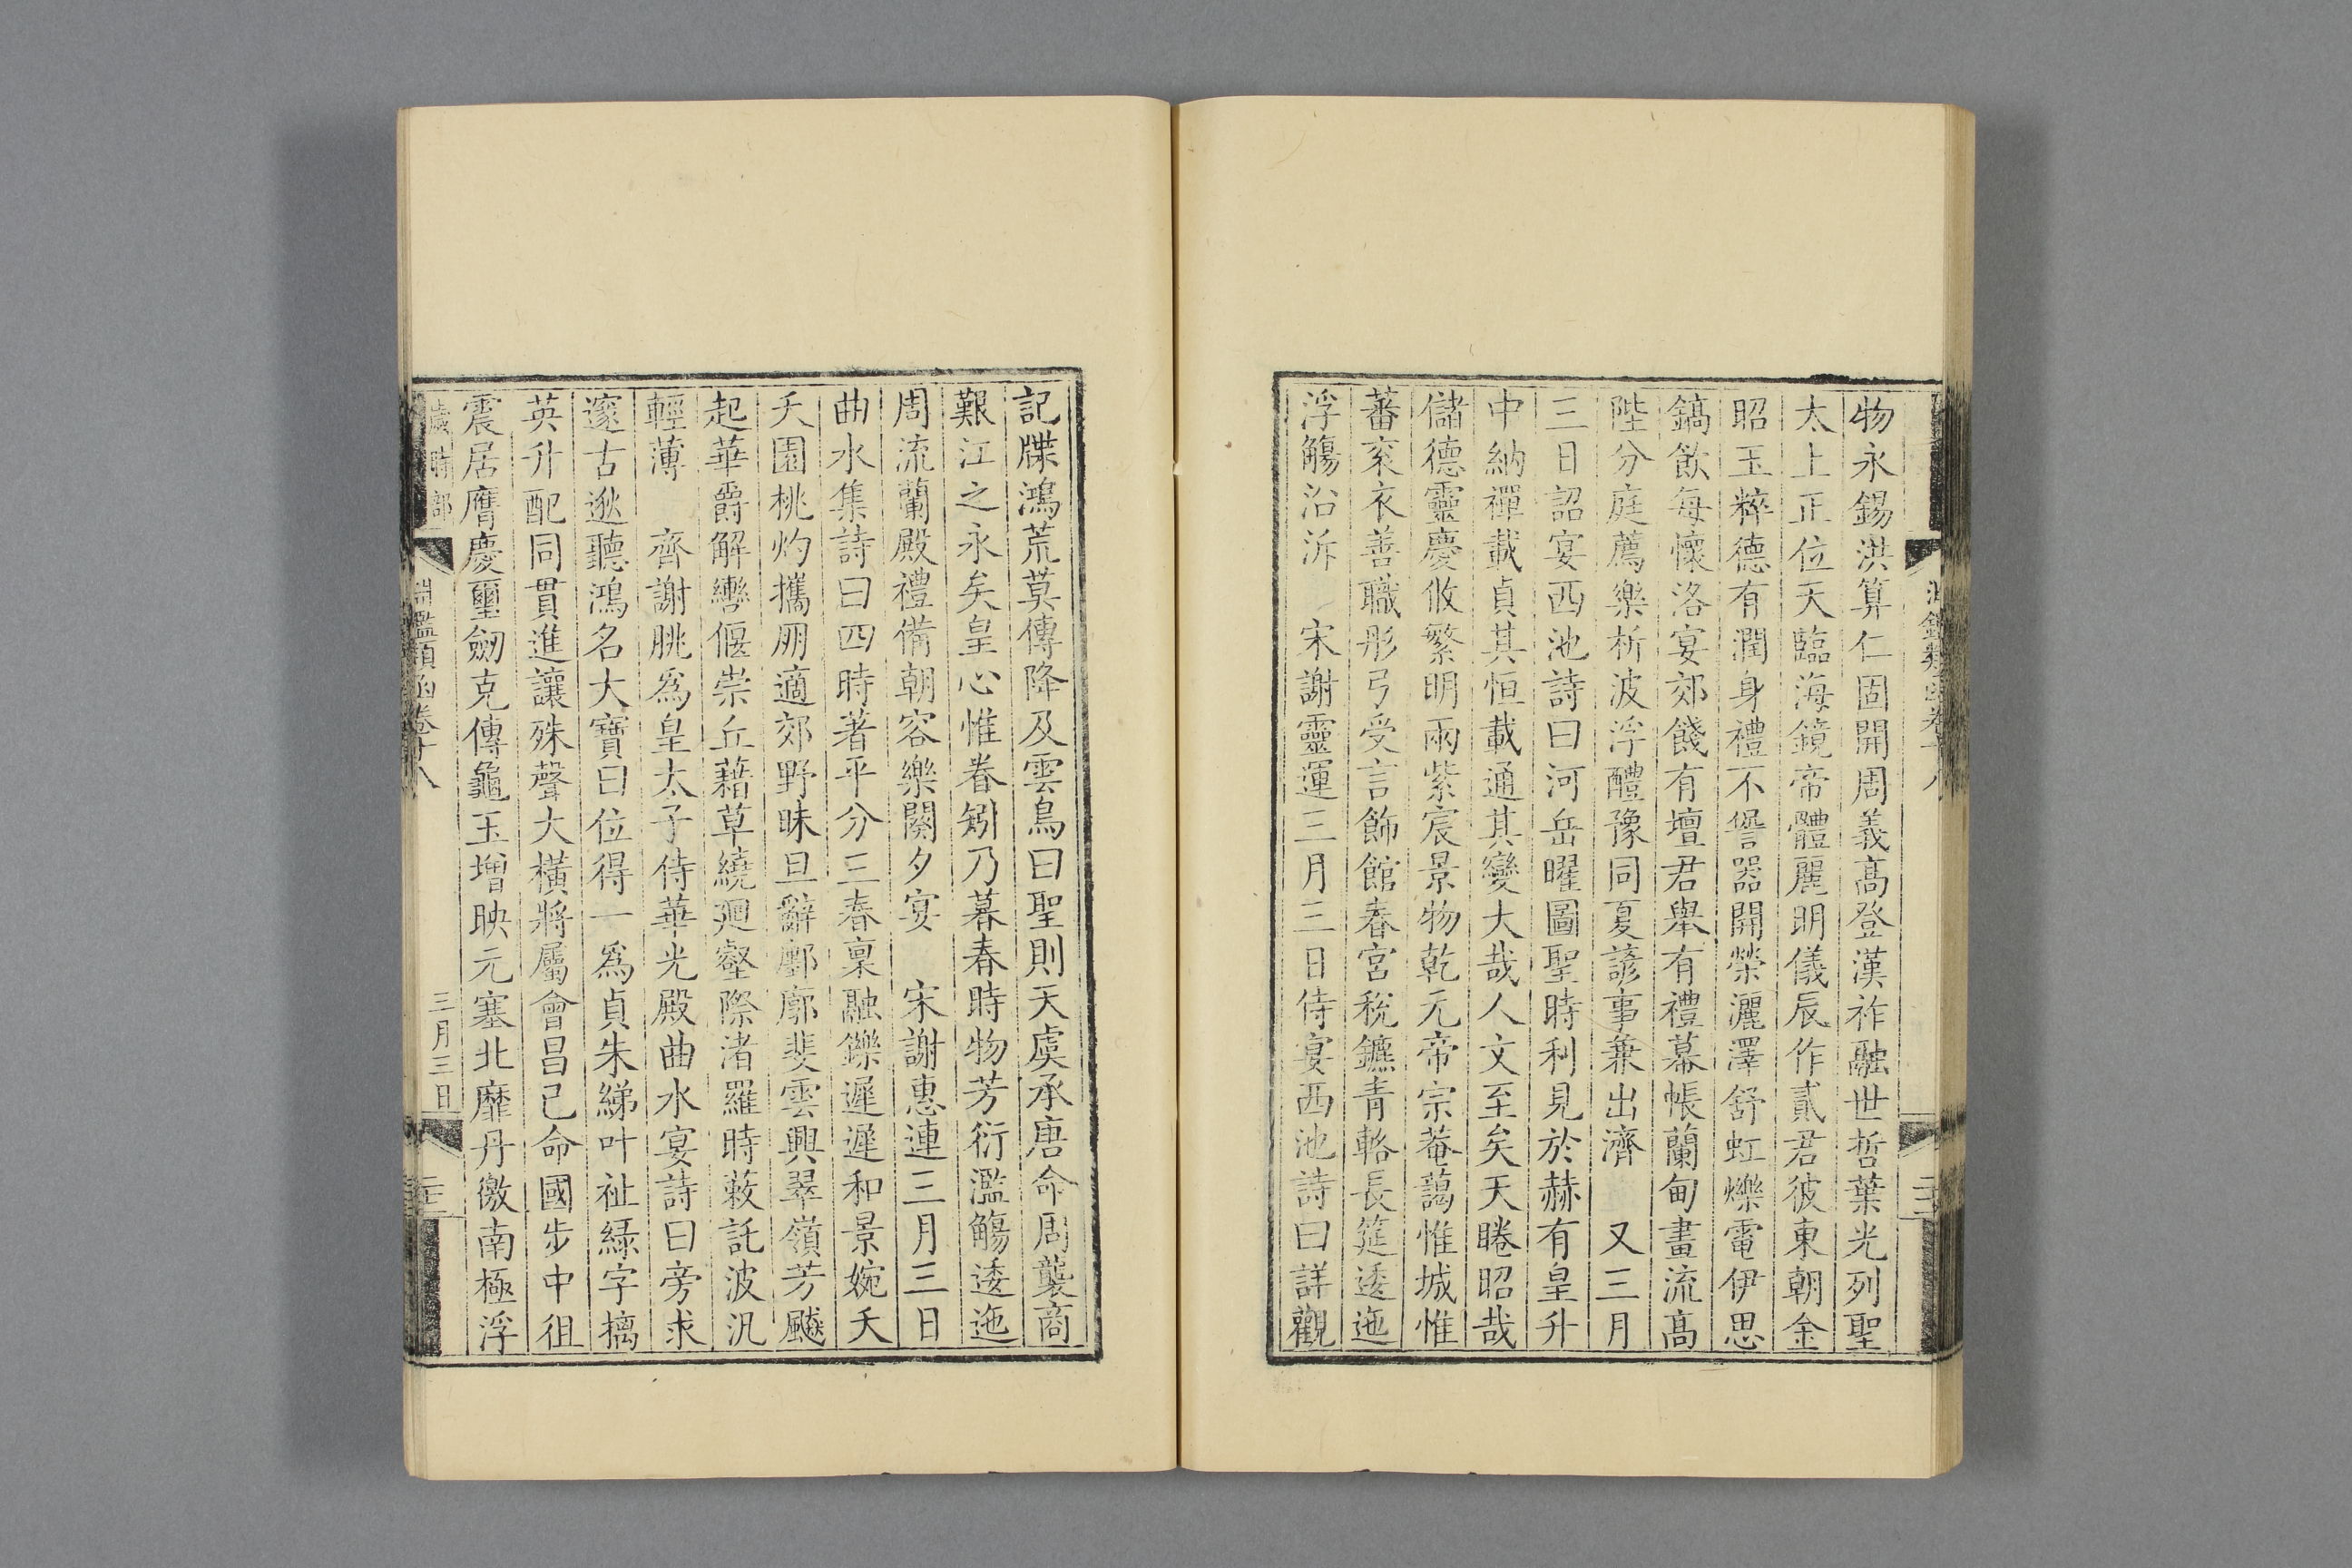 物永錫洪算仁固開周義高登漢祚融世哲葉光列聖
太上正位天臨海鏡帝體麗明儀辰作貳君彼東朝金
昭玉粹德有潤身禮不諐器開榮灑澤舒虹爍電伊思
鎬飲每懷洛宴郊餞有壇君舉有禮幕帳蘭甸畫流高
陛分庭薦樂析波浮醴豫同夏諺事兼出濟　又三月
三日詔宴西池詩曰河岳曜圖聖時利見於赫有皇升
中納禪載貞其恒載通其變大哉人文至矣天睠昭哉
儲德靈慶攸繁明兩紫宸景物乾元帝宗菴藹惟城惟
蕃衮衣善職彤弓受言飾館春宮稅鑣青輅長筵逶迤
浮觴沿泝　宋謝靈運三月三日侍宴西池詩曰詳觀
記牒鴻荒莫傳降及雲鳥曰聖則天虞承唐命周襲商
艱江之永矣皇心惟眷矧乃暮春時物芳衍濫觴逶迤
周流蘭殿禮備朝容樂闋夕宴　宋謝惠連三月三日
曲水集詩曰四時著平分三春稟融鑠遲遲和景婉夭
夭園桃灼攜朋適郊野昧旦辭鄽廓斐雲興翠嶺芳飈
起華爵解轡偃崇丘藉草繞廻壑際渚羅時蔌託波汎
輕薄　齊謝朓爲皇太子侍華光殿曲水宴詩曰旁求
邃古逖聽鴻名大寶曰位得一爲貞朱綈叶祉綠字摛
英升配同貫進讓殊聲大橫將屬會昌已命國步中徂
震居膺慶璽劒克傳龜玉增映元塞北靡丹徼南極浮
歲時部　淵鑑類函卷十八　三月三日